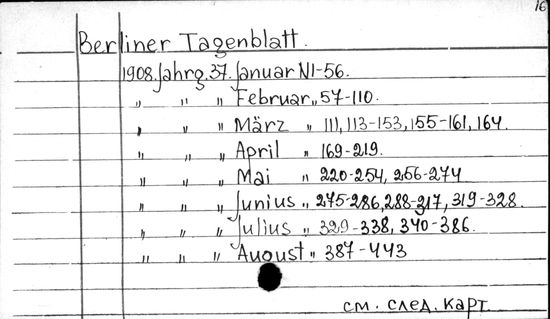 16
Berliner Tagenblatt.
1908. Jahrg. 37. Januar N1-56.
„ „ „ Februar „ 57-110.
„ „ „ März „ 111, 113-153, 155-161, 164.
„ „ „ April „ 169-219.
„ „ „ Mai „ 220-254, 256-274
„ „ „ Junius „ 275-286, 288-317, 319-328.
„ „ „ Julius „ 329-338, 340-386.
„ „ „ August „ 387-443
см. след. карт.